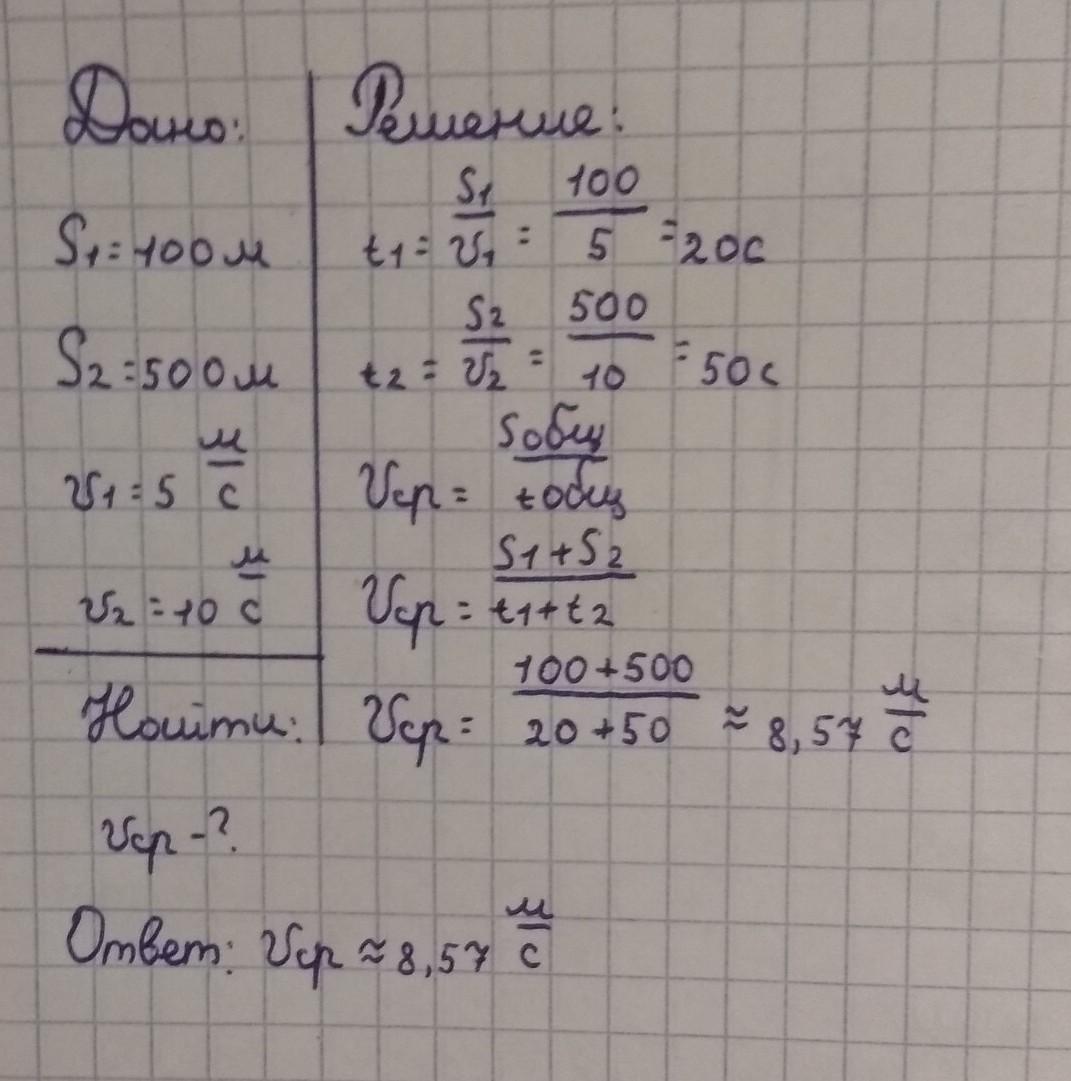 Дано:
S1 = 100 м
S2 = 500 м
v1 = 5 м/с
v2 = 10 м/с
Найти:
vср - ?
Решение:
t1 = S1/v1 = 100/5 = 20с
t2 = S2/v2 = 500/10 = 50с
vср = Sобщ/tобщ
vср = S1+S2/t1+t2
vср = 100+500/20+50 ≈ 8,57 м/с
Ответ: vср ≈ 8,57 м/с